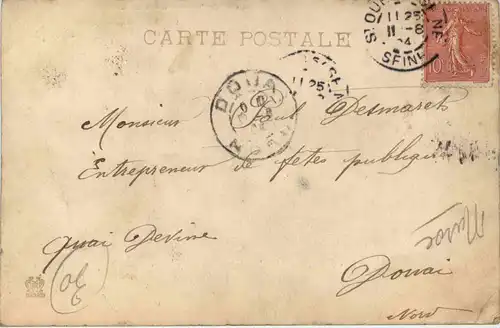 CARTE POSTALE
ST OUEN
11 25
11 -8
04
SEINE
10
11 25
DOUAI
Monsieur Paul Desmarets
Entrepreneur de fêtes publiques
Quai Devine
Douai
Nord